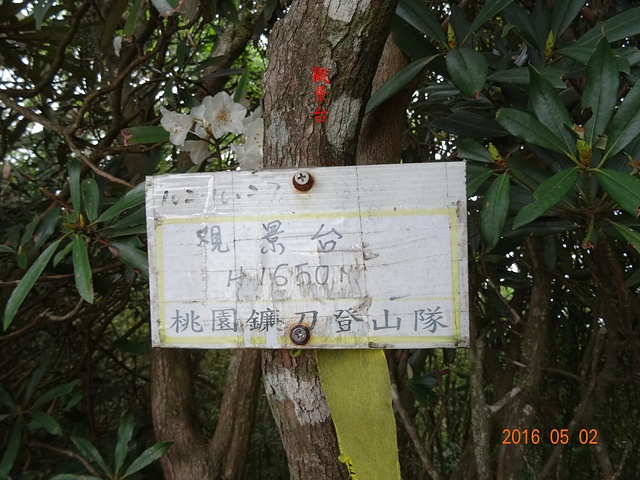 觀景台
H 1650M
桃園鐮刀登山隊
2016 05 02